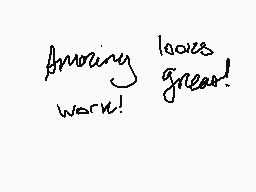 Amazing looks
work! great!